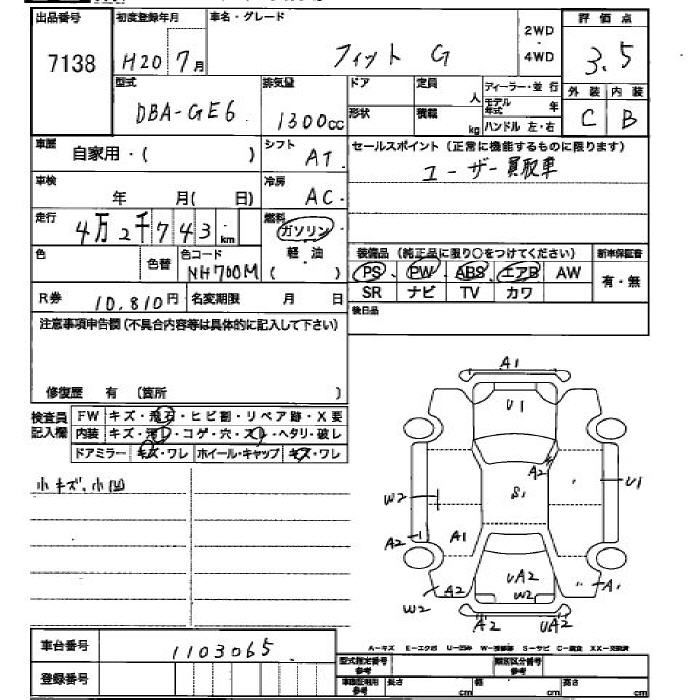 出品番号 初度登録年月 車名・グレード 評価点
7138 H20 7月 フィット G 2WD 4WD 3.5
型式 排気量 ドア 定員 人 ディーラー・並行 外装 内装
DBA-GE6 1300cc 形状 積載 kg モデル年式 年 ハンドル 左・右 C B
車歴 自家用・( ) シフト AT セールスポイント(正常に機能するものに限ります)
車検 年 月( 日) 冷房 AC ユーザー買取車
走行 4万2千743km 燃料 ガソリン
色 色替 色コード NH700M 軽・油 ( ) 装備品(純正品に限り○をつけてください) 新車保証書
PS PW ABS エアB AW 有・無
R券 10,810円 名変期限 月 日 SR ナビ TV カワ
注意事項申告欄(不具合内容等は具体的に記入して下さい) 後日品
修復歴 有 (箇所 )
検査員記入欄 FW キズ・飛石・ヒビ割・リペア跡・X要
内装 キズ・汚レ・コゲ・穴・スレ・ヘタリ・破レ
ドアミラー キズ・ワレ ホイール・キャップ キズ・ワレ
小キズ、小凹
A1
U1
A2
S1
W2
U1
A2
A1
A2
W2
UA2
W2
A1
A2
UA2
A-キズ E-エクボ U-凹み W-補修跡 S-サビ C-腐食 XX-交換済
車台番号 1103065
登録番号
型式指定番号 参考 類別区分番号 参考
車庫証明用 参考 長さ cm 幅 cm 高さ cm